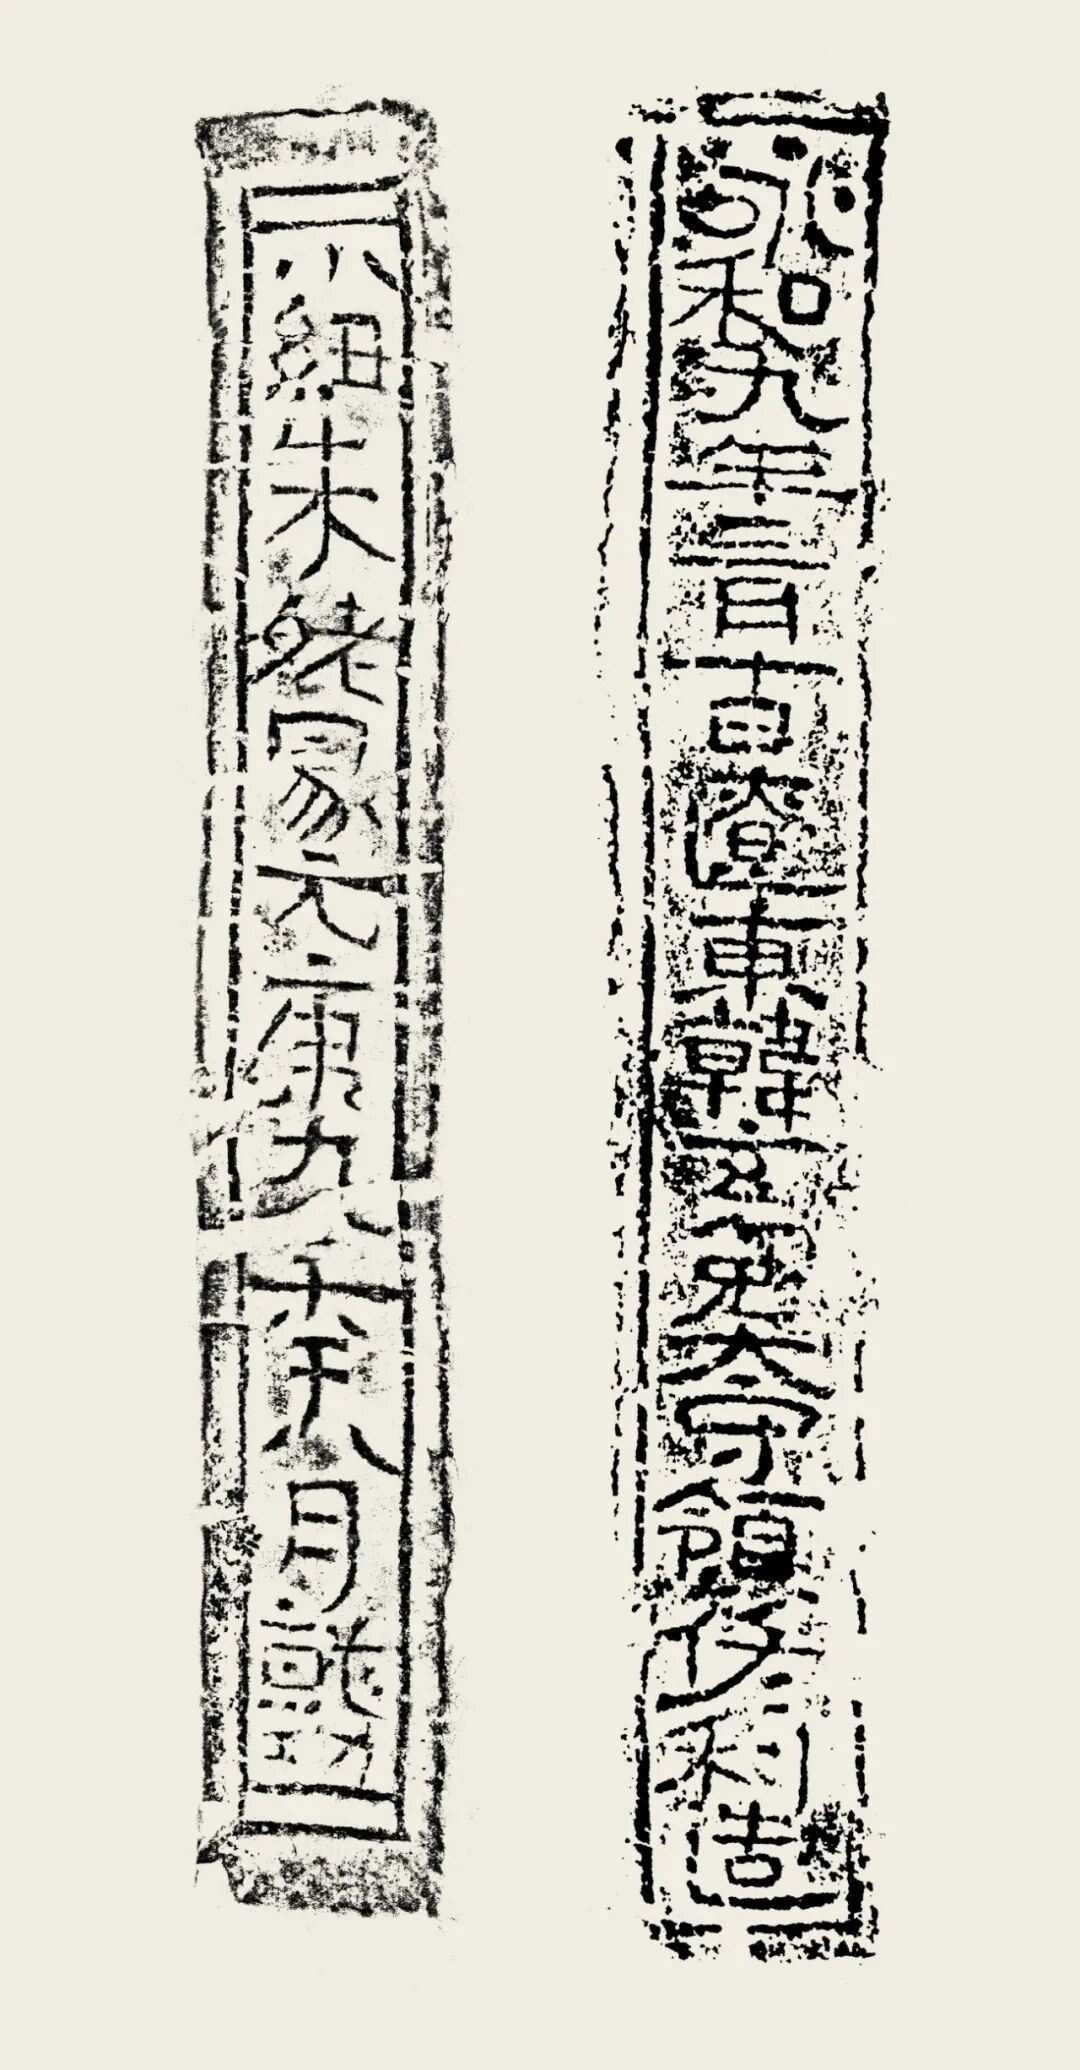 永和九年三月十日遼東韓玄菟太守領佟利造
紐朱家元康九年八月